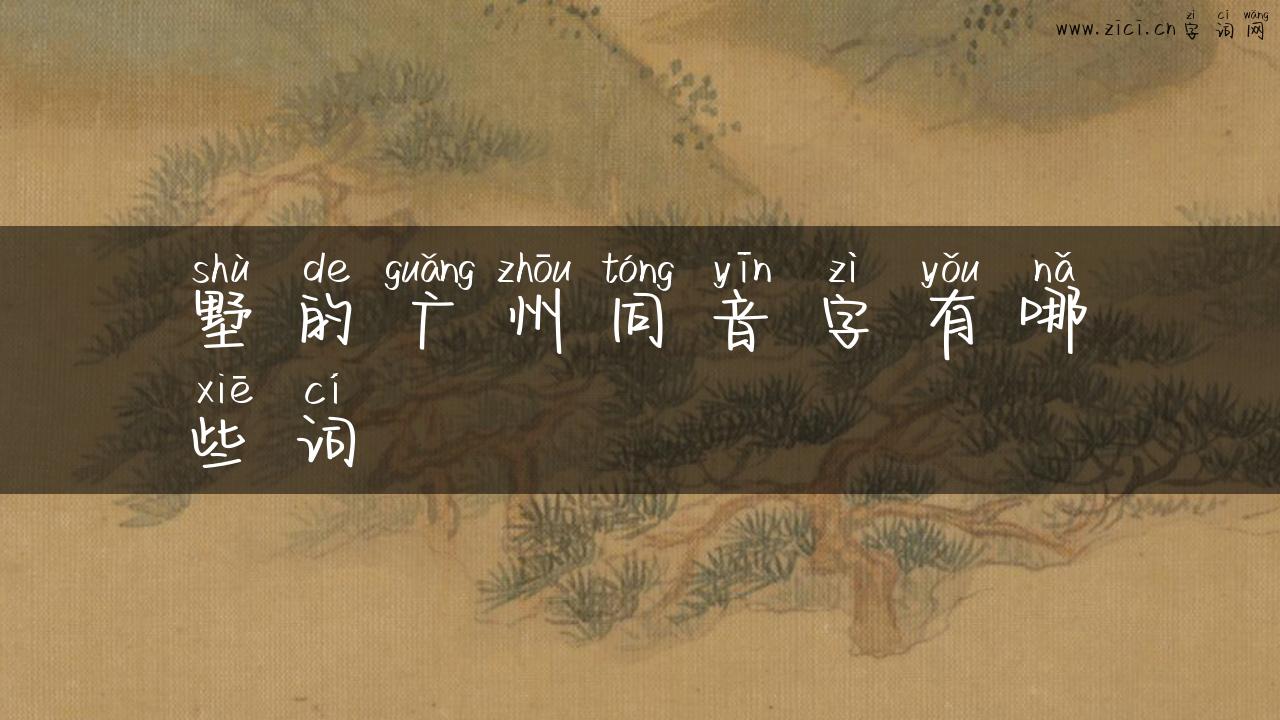 zì cí wǎng
www.zici.cn 字 词 网
shù de guǎng zhōu tóng yīn zì yǒu nǎ
墅 的 广 州 同 音 字 有 哪
xiē cí
些 词